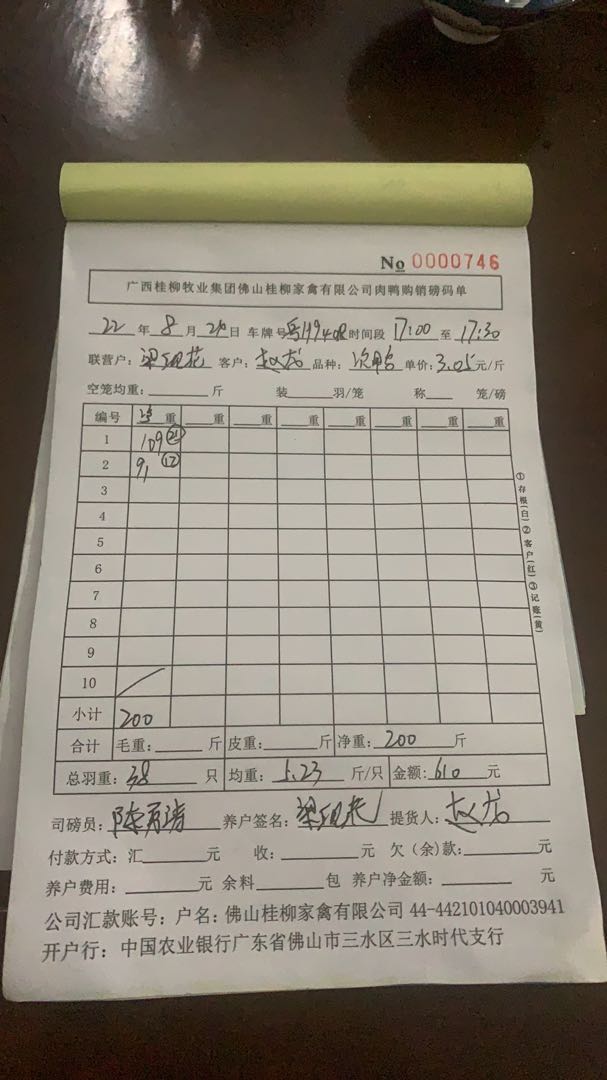 No 0000746
广西桂柳牧业集团佛山桂柳家禽有限公司肉鸭购销磅码单
22 年 8 月 日 车牌号 时间段 17:00 至 17:30
联营户: 梁现花 客户: 赵龙 品种: 次鸭 单价: 3.05 元/斤
空笼均重: 斤 装 羽/笼 称 笼/磅
编号 净重 重 重 重 重 重 重 重
1 109 (21)
2 91 (17)
3
4
5
6
7
8
9
10
小计 200
合计 毛重: 斤 皮重: 斤 净重: 200 斤
总羽重: 38 只 均重: 5.23 斤/只 金额: 610 元
司磅员: 陈 养户签名: 梁现花 提货人: 赵龙
付款方式: 汇 元 收: 元 欠(余)款: 元
养户费用: 元 余料 包 养户净金额: 元
公司汇款账号: 户名: 佛山桂柳家禽有限公司 44-442101040003941
开户行: 中国农业银行广东省佛山市三水区三水时代支行
①存根(白)②客户(红)③记账(黄)